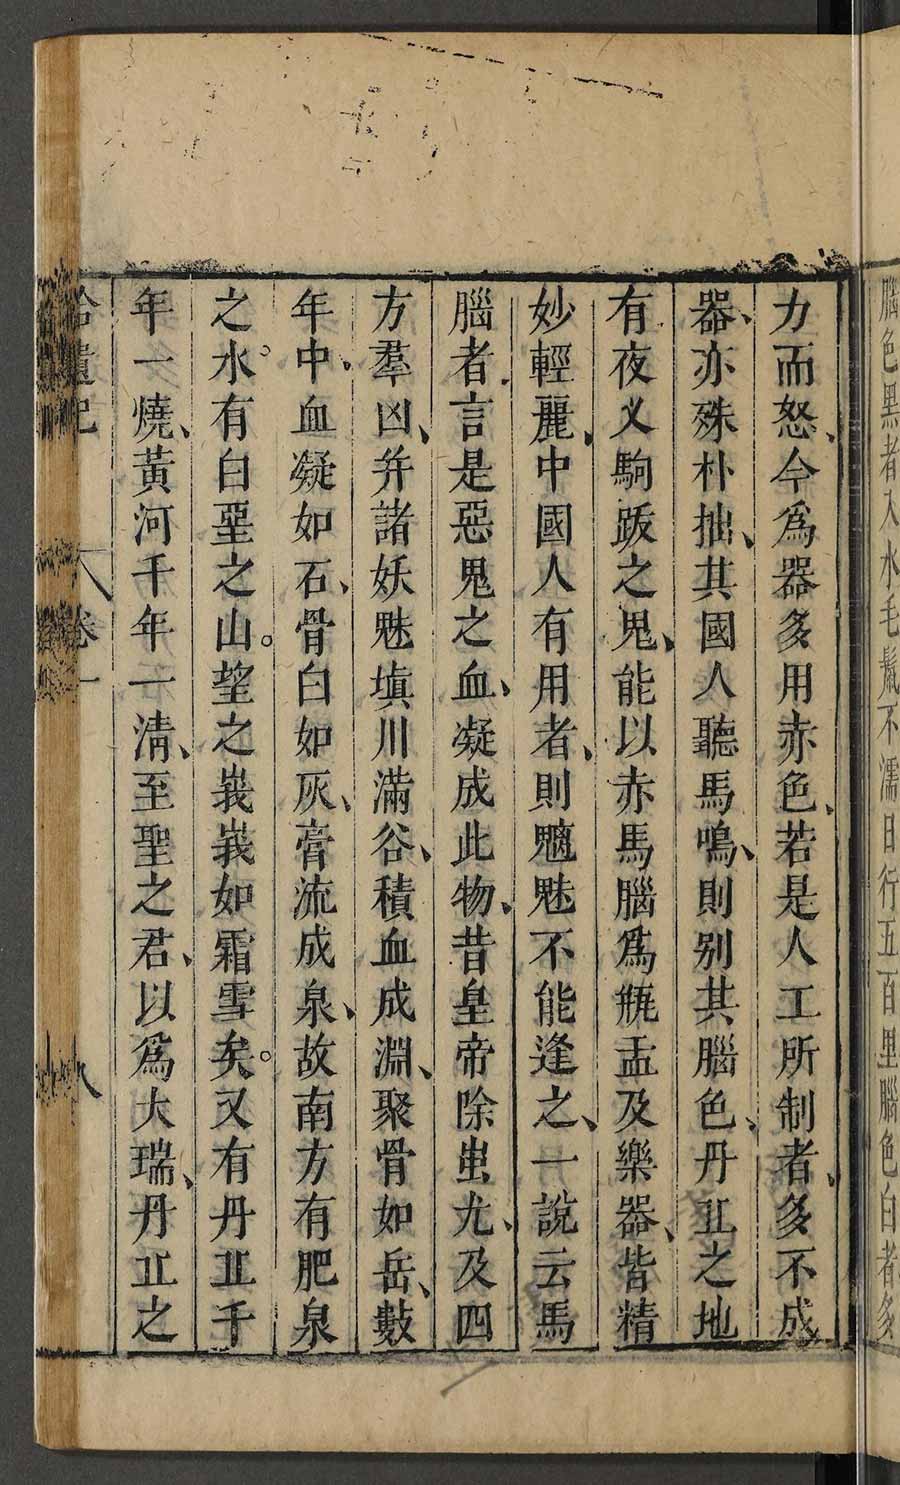 腦色黑者入水毛鬛不濡日行五百里腦色白者多
力而怒、今爲器多用赤色、若是人工所制者、多不成
器、亦殊朴拙、其國人聽馬鳴、則别其腦色、丹丠之地
有夜义駒跋之鬼、能以赤馬腦爲瓶盂及樂器、皆精
妙輕麗、中國人有用者、則魑魅不能逢之、一說云馬
腦者言是惡鬼之血、凝成此物、昔皇帝除蚩尤、及四
方羣凶、并諸妖魅塡川滿谷、積血成淵、聚骨如岳、數
年中、血凝如石、骨白如灰、膏流成泉、故南方有肥泉
之水。有白堊之山。望之峩峩如霜雪矣。又有丹丠千
年一燒、黃河千年一淸、至聖之君、以爲大瑞、丹丠之
拾遺記 卷一 八